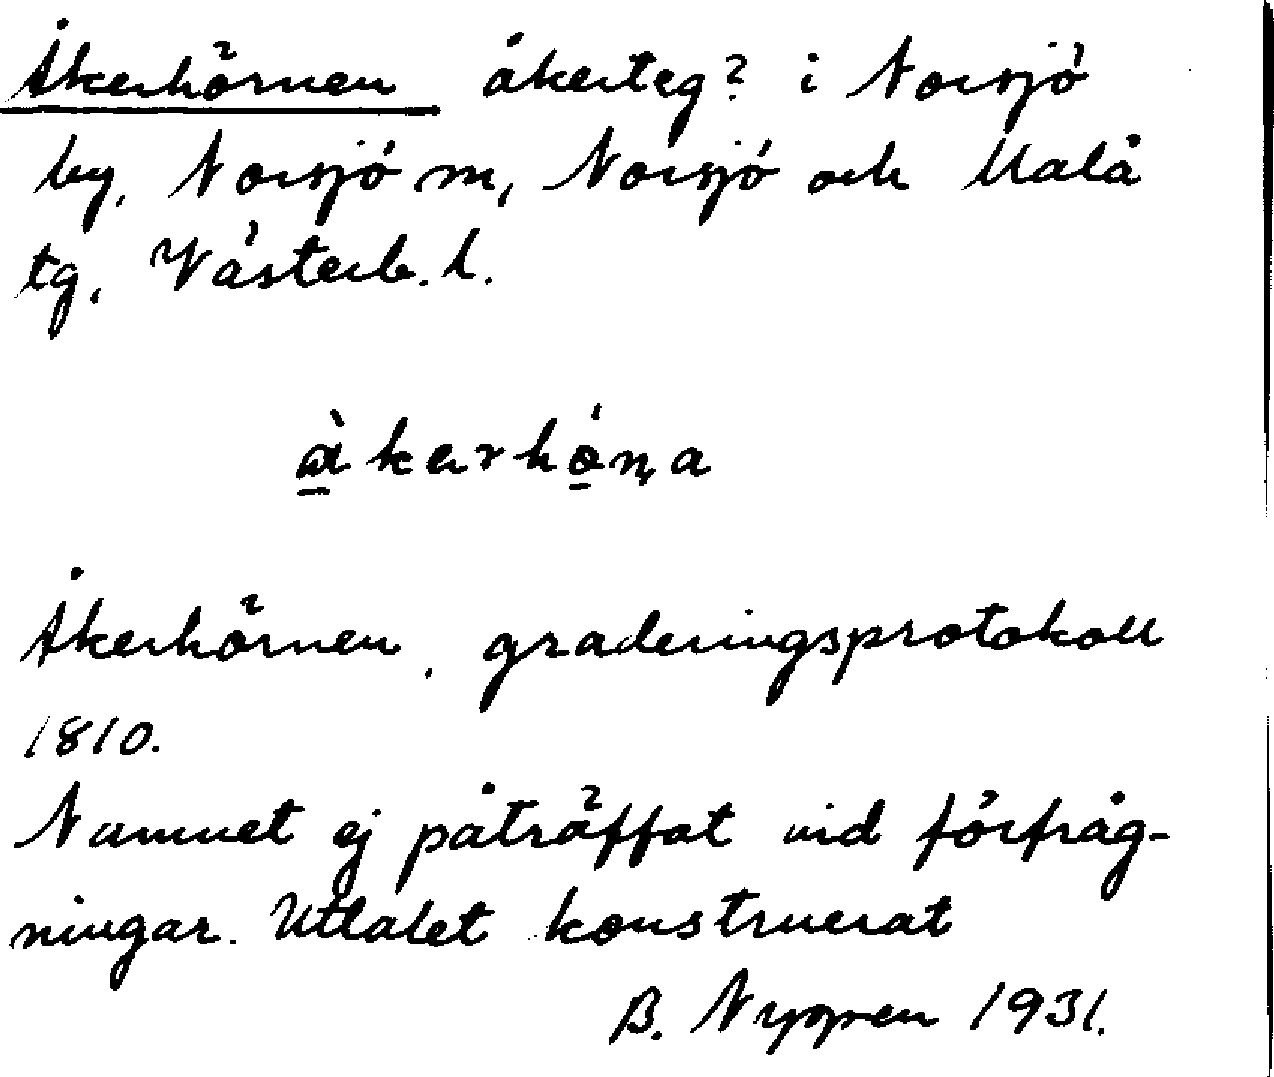 Åkerhörnen åkerteg? i Norsjö
by, Norsjö sn, Norsjö och Malå
tg, Västerb. l.
åkerhöṇa
Åkerhörnen, graderingsprotokoll
1810.
Namnet ej påträffat vid förfråg-
ningar. Uttalet konstruerat
B. Nygren 1931.